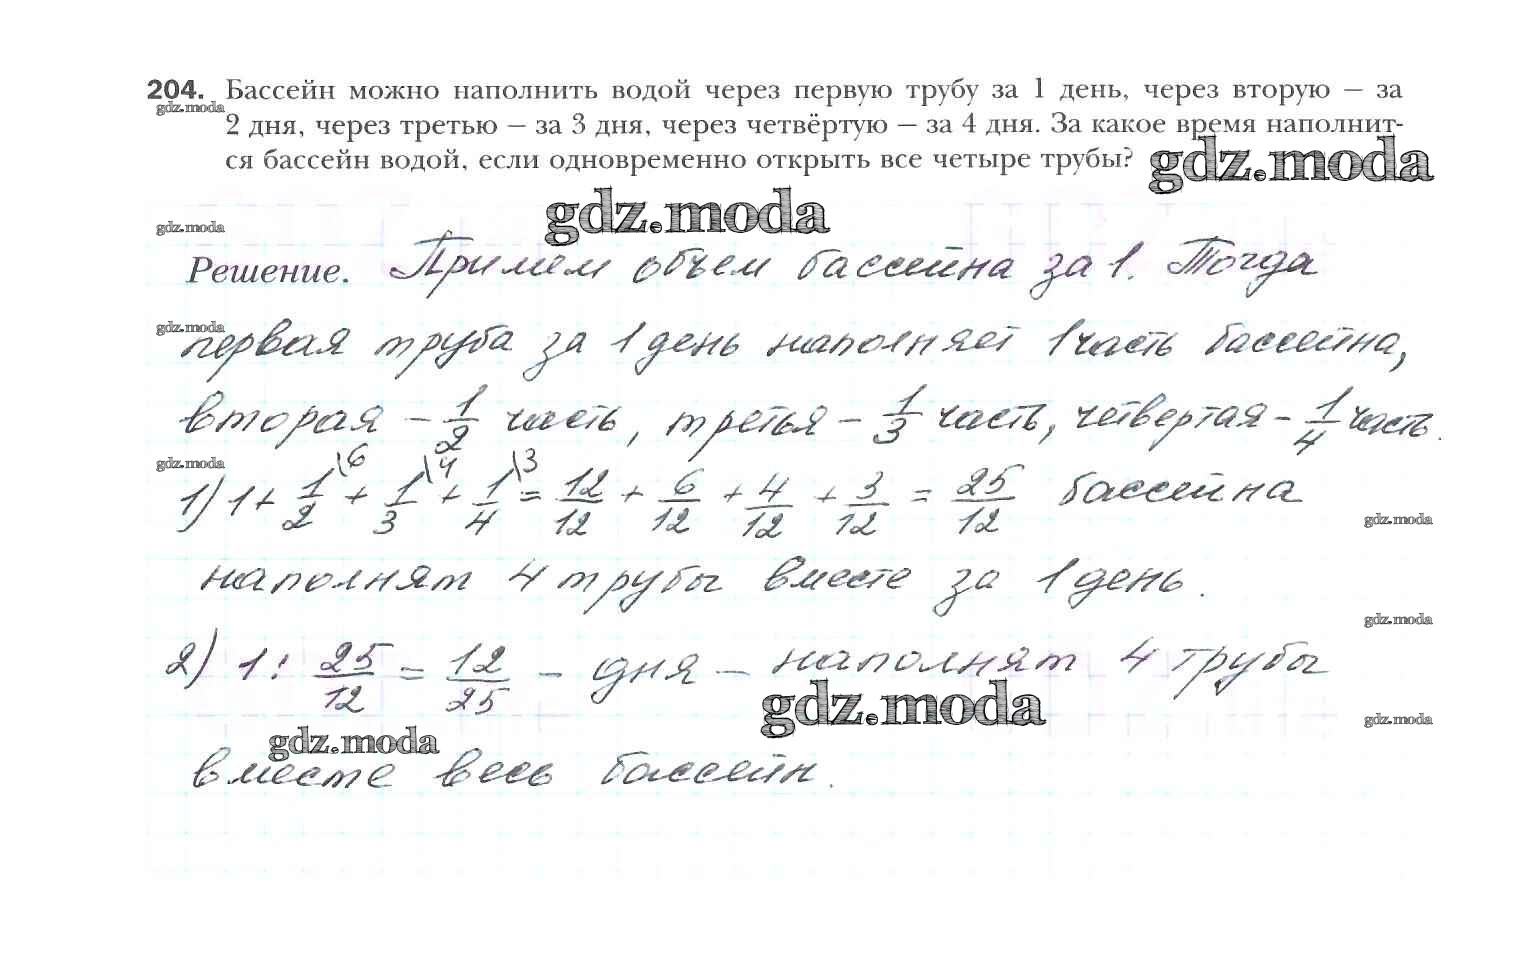 204. Бассейн можно наполнить водой через первую трубу за 1 день, через вторую – за
gdz.moda
2 дня, через третью – за 3 дня, через четвёртую – за 4 дня. За какое время наполнит-
ся бассейн водой, если одновременно открыть все четыре трубы?
gdz.moda
gdz.moda
gdz.moda
Решение. Примем объем бассейна за 1. Тогда
gdz.moda
первая труба за 1 день наполняет 1 часть бассейна,
вторая – 1/2 часть, третья – 1/3 часть, четвертая – 1/4 часть.
gdz.moda
1) 1 + 1/2 \6 + 1/3 \4 + 1/4 \3 = 12/12 + 6/12 + 4/12 + 3/12 = 25/12 бассейна
gdz.moda
наполнят 4 трубы вместе за 1 день.
gdz.moda
2) 1 : 25/12 = 12/25 – дня – наполнят 4 трубы
gdz.moda
gdz.moda
gdz.moda
вместе весь бассейн.